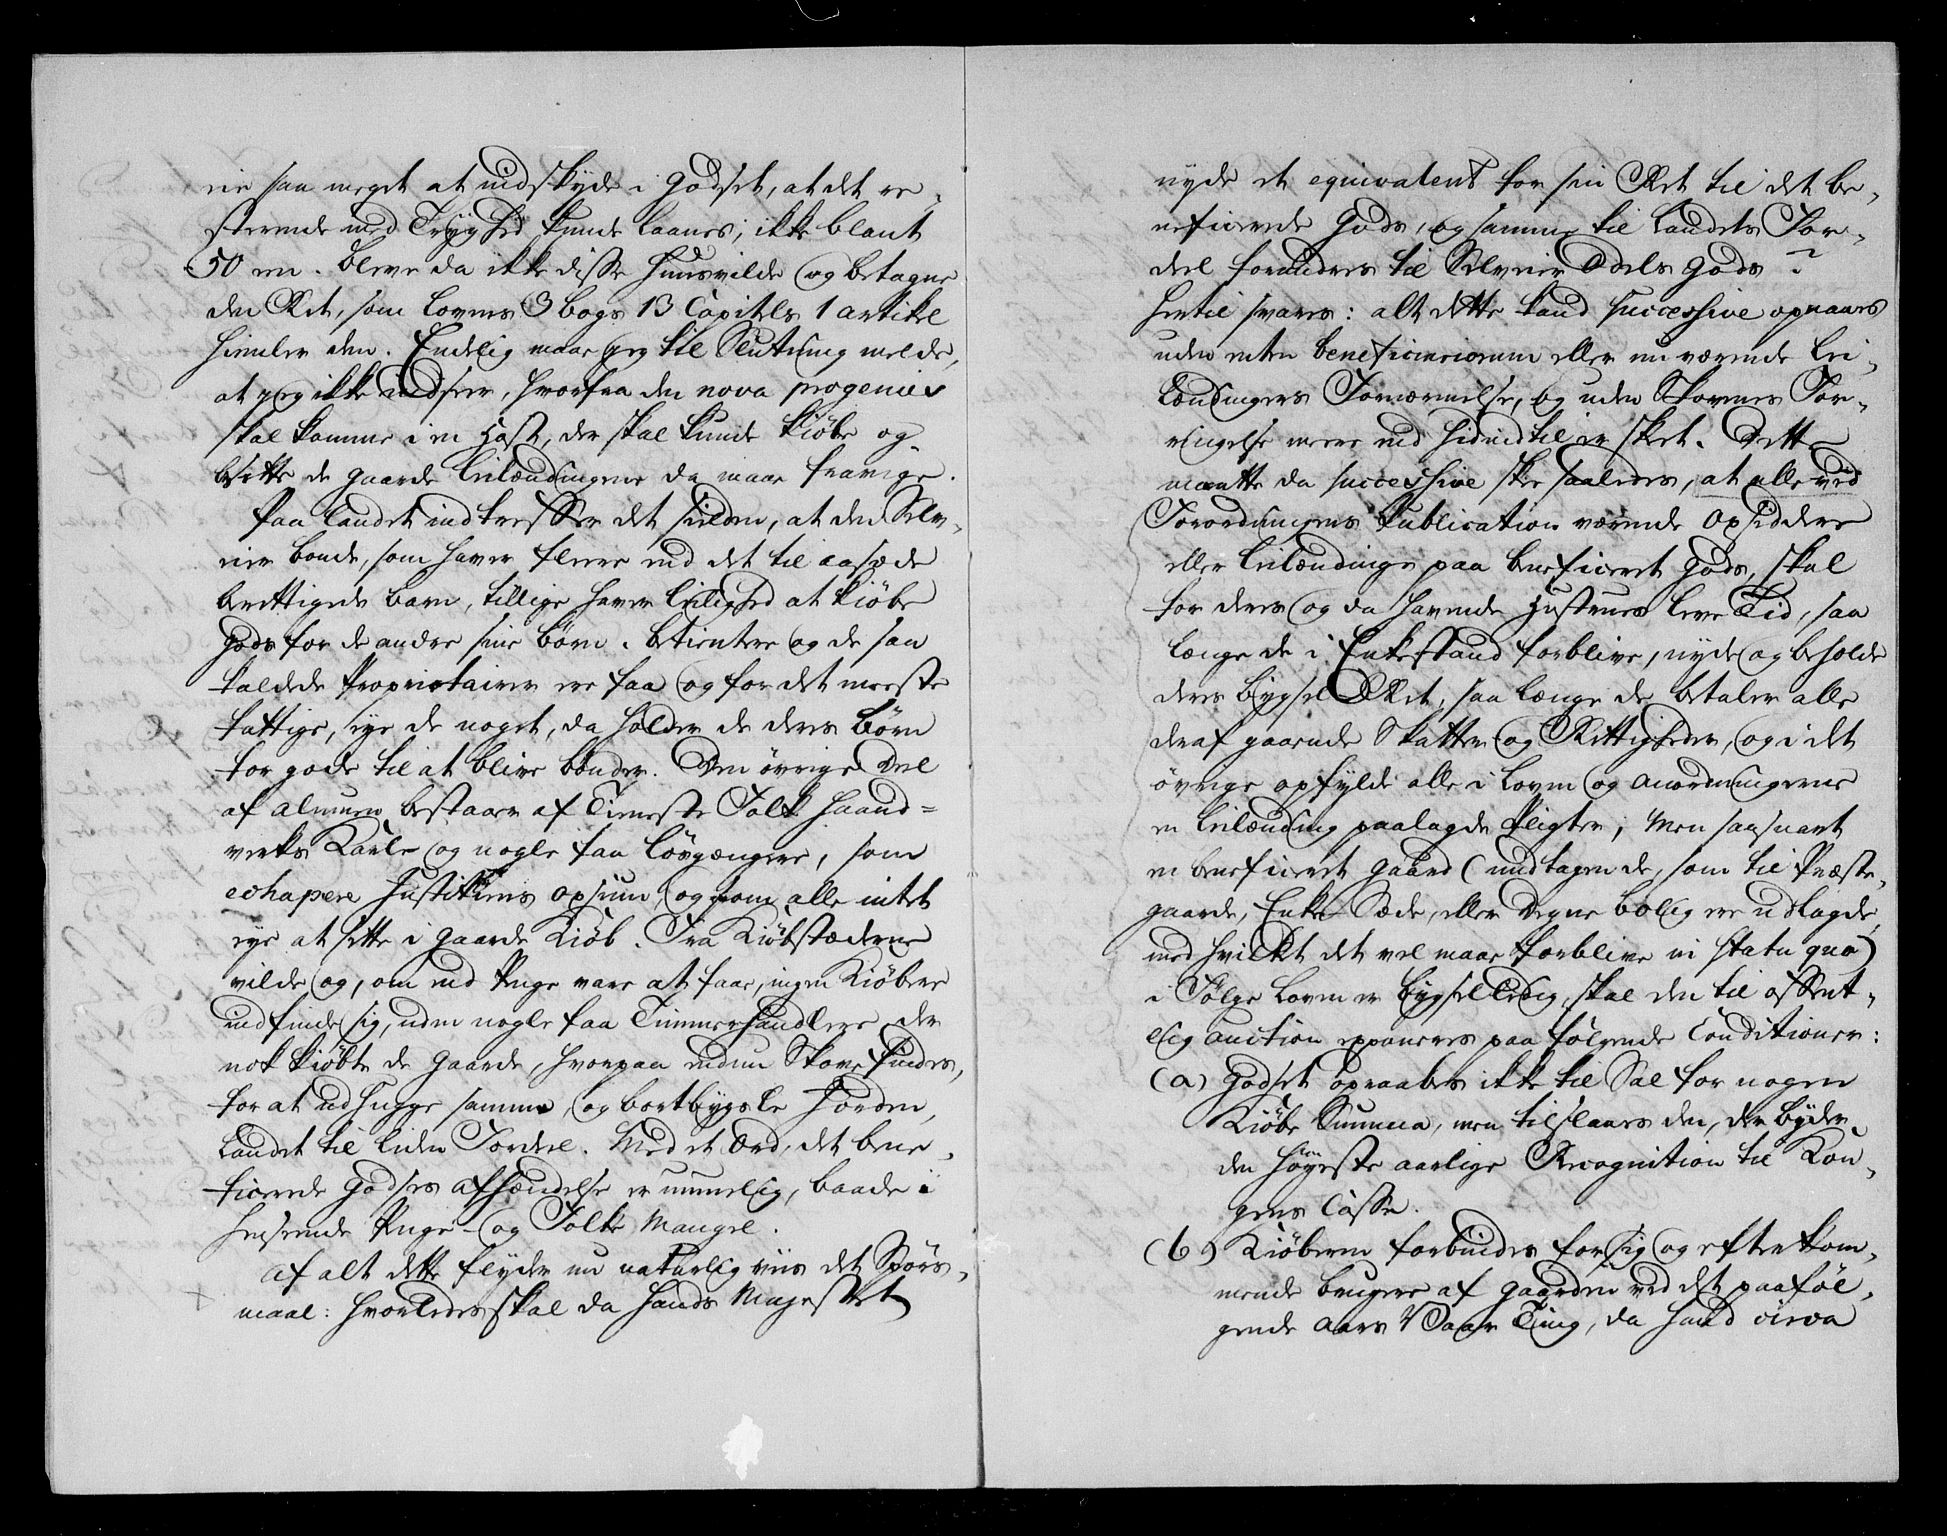 eie saa meget at udskyde i Godset, at det re-
sterende med Tryghed kunde laanes; ikke blant
50 en. bleve da ikke disse huusvilde og betagne
den Ret, som Lovens 3 bogs 13 Capitels 1 artikel
hiemler dem. Endelig maae jeg til Slutning melde,
at jeg ikke indseer, hvorfra den nova progenies
skal komme i en Hast, der skal kunde kiöbe og
besitte de gaarde Leilændingene da maae fravige.
Paa landet indtreffer det sielden, at den Selv-
eier bonde, som haver fleere end det til aasæde
berettigede barn, tillige haver leilighed at kiöbe
Gods for de andre sine börn. betientere og de saa
kaldede Proprietairer ere faa og for det meeste
fattige, eye de noget, da holder de deres börn
for gode til at blive bönder. Den övrige Deel
af almuen bestaaer af Tieneste Folk Haand-
verks Karle og nogle faa lösgængere, som
echapere Justitiens opsiun, og som alle intet
eye at sette i gaarde Kiöb. Fra Kiöbstæderne
vilde og, om end Penge vare at faae, ingen Kiöbere
indfinde sig, uden nogle faa Timmerhandlere der
nok kiöbte de gaarde, hvorpaa endnu Skove findes,
for at udhugge samme, og bortbygsle Jorden,
Landet til liden Fordeel. Med et Ord, det bene-
ficerede Godses afhændelse er umuelig, baade i
henseende Penge- og Folke Mangel.
Af alt dette flyder nu naturlig viis det Spörs-
maal: hvorledes skal da Hands Majestet
nyde et equivalent for sin Ret til det be-
neficerede Gods, og samme til Landets For-
deel forandres til Selveier Odels Gods?
Hertil svares: alt dette kand successive opnaaes
uden enten beneficiariorum eller nu værende Lei-
lændingers Fornærmelse, og uden Skovenes For-
ringelse meere end hidindtil er skeet. Dette
maatte da successive skee saaledes, at alle ved
Forordningens Publication værende Opsiddere
eller Leilændinge paa beneficeret Gods, skal
for deres og da havende Hustruers leve Tid, saa
længe de i Enkestand forblive, nyde og beholde
deres bygsel Ret, saa længe de betaler alle
deraf gaaende Skatter og Rettigheder, og i det
övrige opfylde alle i Loven og Anordningerne
en Leilænding paalagde Pligter; Men saasnart
en beneficeret gaard (undtagen de, som til Præste-
gaarde, Enke Sæde, eller Degne bolig ere udlagde,
med hvilket det vel maae forblive in statu quo)
i Fölge Loven er bygselledig, skal den til offent-
lig auction exponeres paa fölgende Conditioner:
(a) Godset opraabes ikke til Sal for nogen
Kiöbe Summa, men tilslaaes den, der byder
den höyeste aarlige Recognition til Kon-
gens Casse.
(b) Kiöberen forbindes for sig og efterkom-
mende brugere af gaarden ved det paaföl-
gende Aars Vaar Ting, da Hand circa